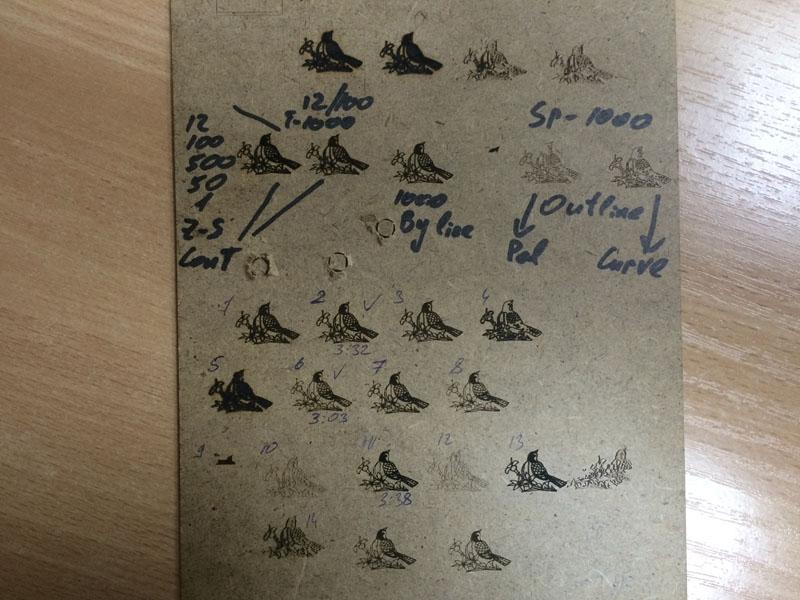 12/100
T-1000
SP-1000
12
100
500
50
1
Z-5
Cont
1000
By line
Outline
Pol
Curve
1 2 3 4
3:32
5 6 7 8
3:03
9 10 11 12 13
3:38
14